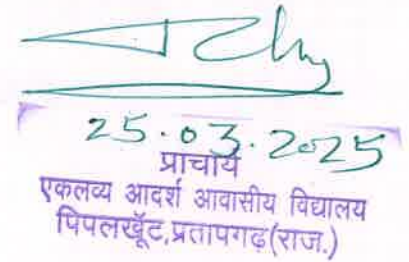 25.03.2025
प्राचार्य
एकलव्य आदर्श आवासीय विद्यालय
पिपलखूँट,प्रतापगढ़(राज.)